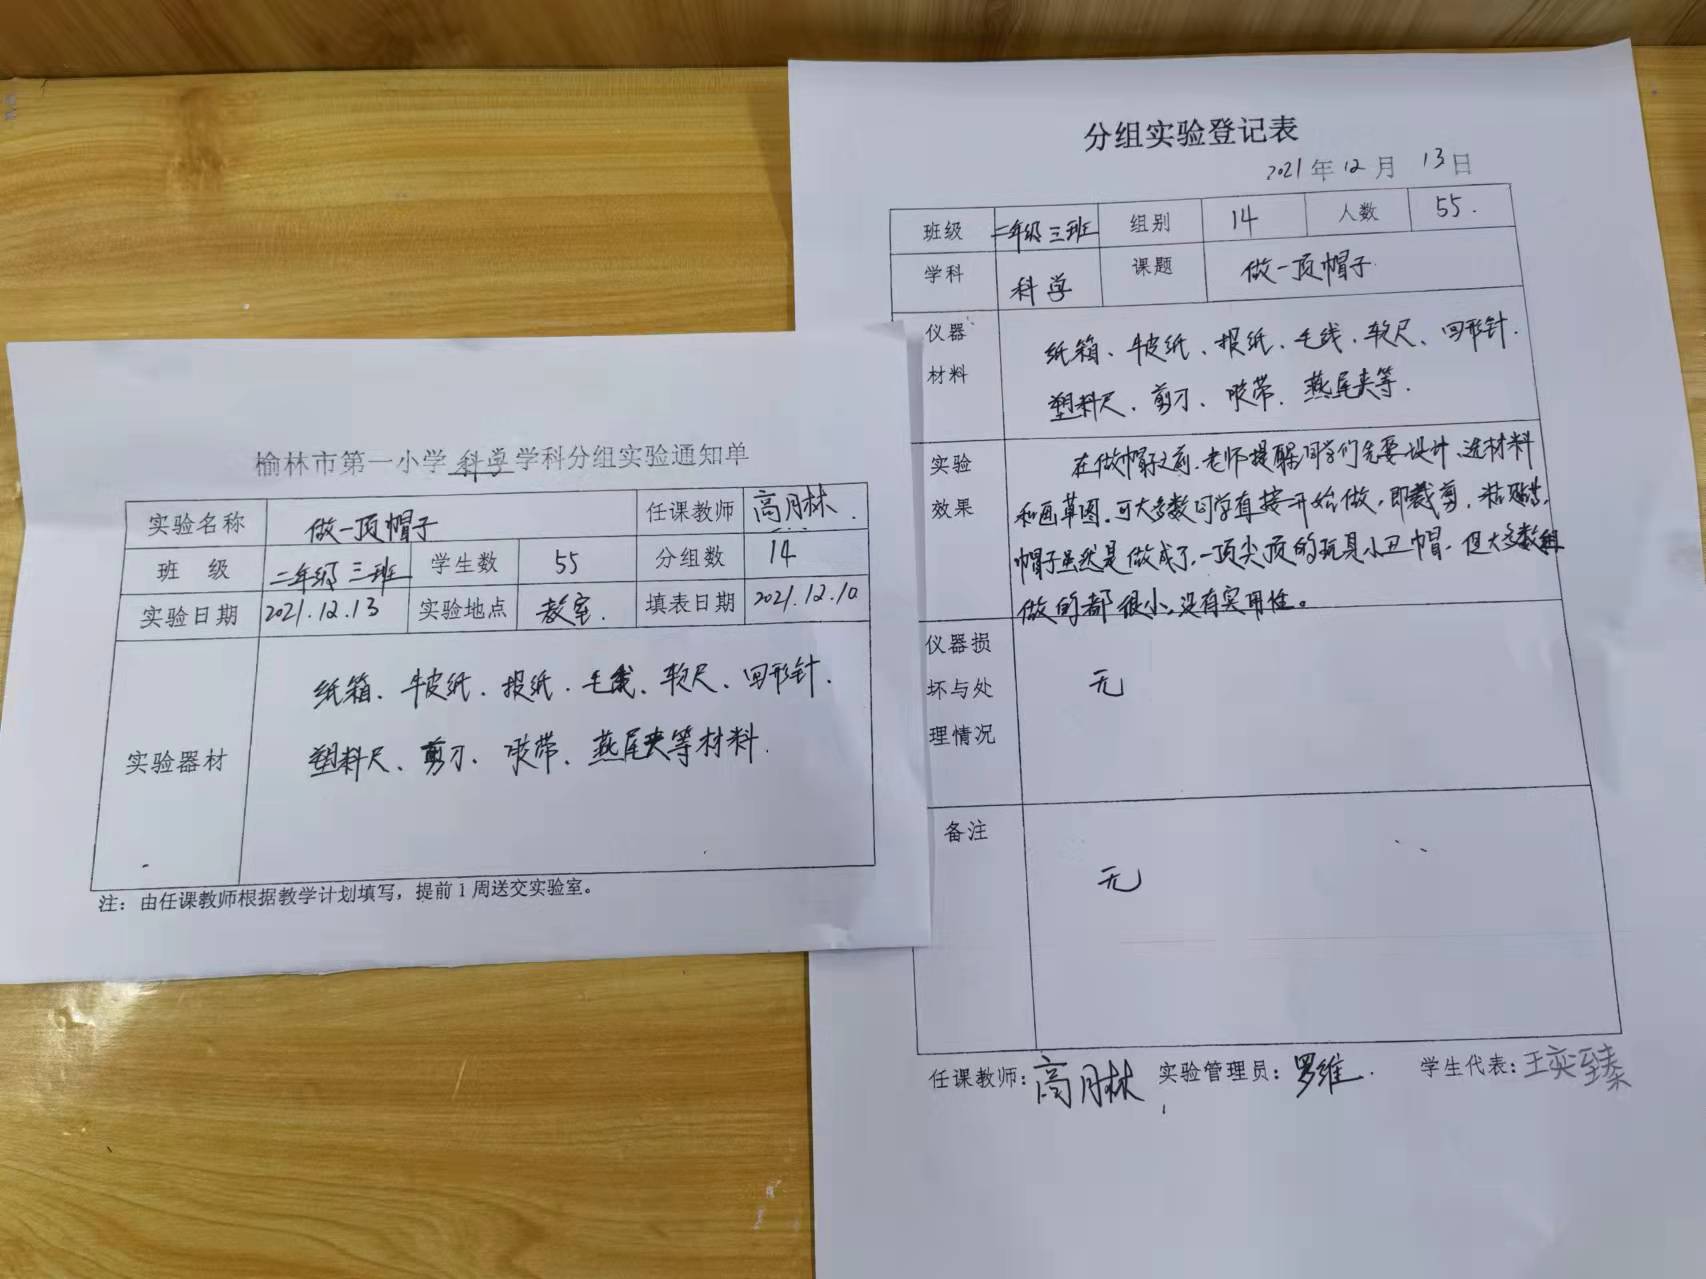 榆林市第一小学科学学科分组实验通知单
实验名称 做一顶帽子 任课教师 高月林.
班 级 二年级三班 学生数 55 分组数 14
实验日期 2021.12.13 实验地点 教室. 填表日期 2021.12.10
实验器材
纸箱、牛皮纸、报纸、毛线、软尺、回形针.
塑料尺、剪刀、胶带、燕尾夹等材料.
注：由任课教师根据教学计划填写，提前1周送交实验室。
分组实验登记表
2021年12月 13日
班级 二年级三班 组别 14 人数 55.
学科 科学 课题 做一顶帽子.
仪器
材料
纸箱、牛皮纸、报纸、毛线、软尺、回形针.
塑料尺、剪刀、胶带、燕尾夹等.
实验
效果
在做帽子之前.老师提醒同学们先要设计、选材料
和画草图.可大多数同学直接开始做,即裁剪、粘贴.
帽子虽然是做成了.一顶尖顶的玩具小丑帽.但大多数组
做的都很小,没有实用性。
仪器损
坏与处
理情况
无
备注
无
任课教师：高月林 实验管理员：罗维. 学生代表：王奕臻